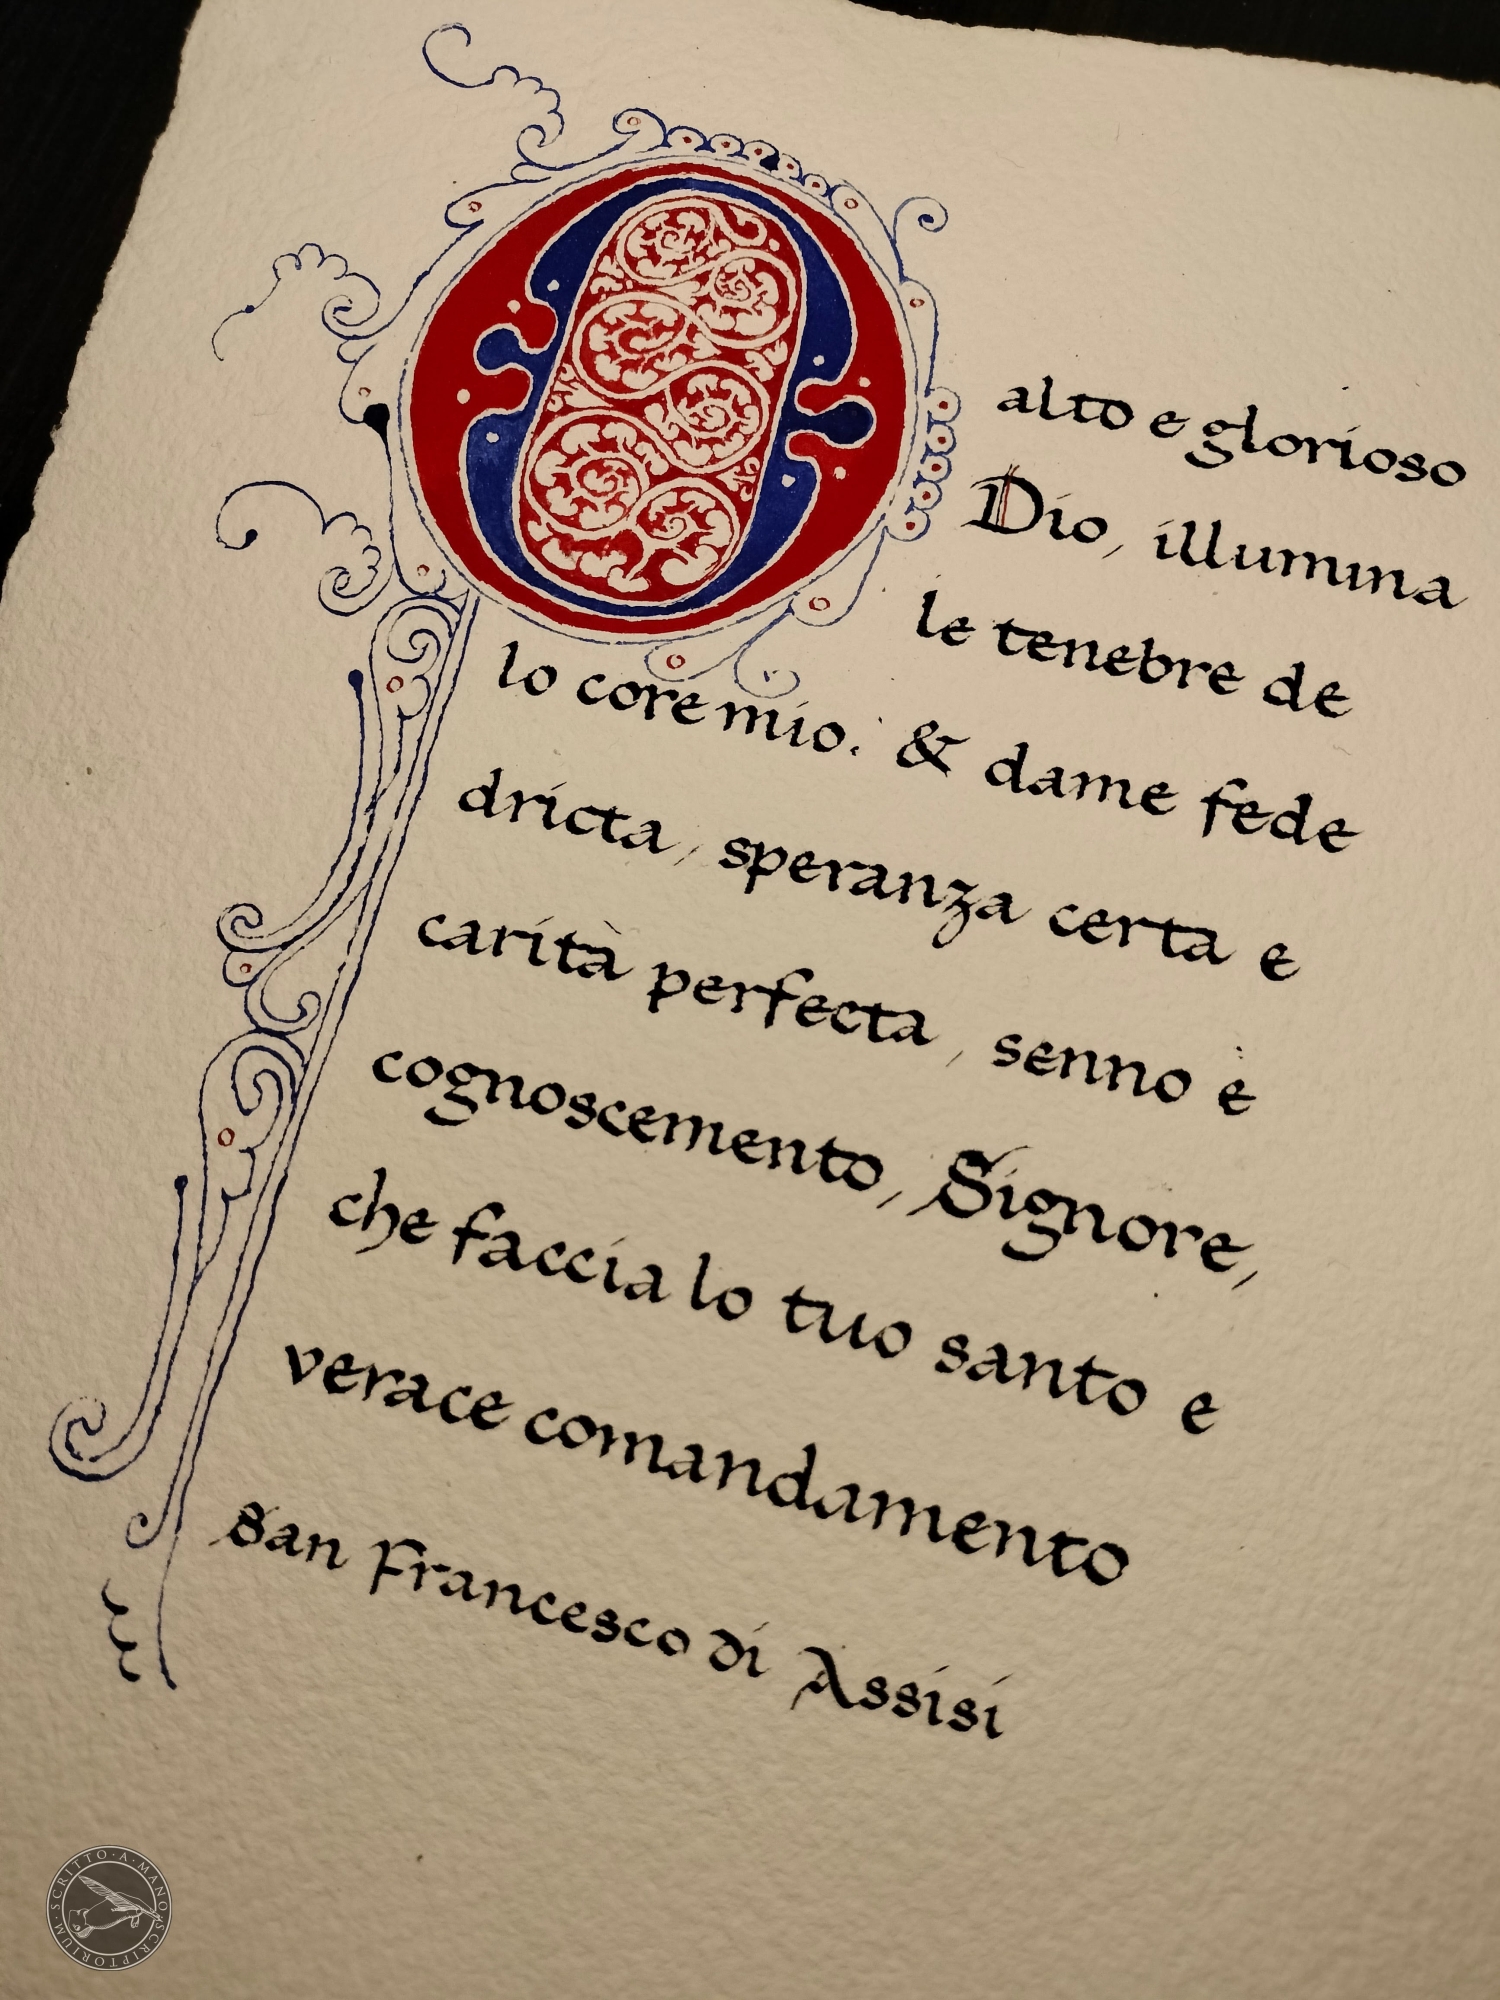 O alto e glorioso
Dio, illumina
le tenebre de
lo core mio. & dame fede
dricta, speranza certa e
carità perfecta, senno e
cognoscemento, Signore,
che faccia lo tuo santo e
verace comandamento
San Francesco di Assisi
SCRITTO · A · MANO · SCRIPTORIUM ·